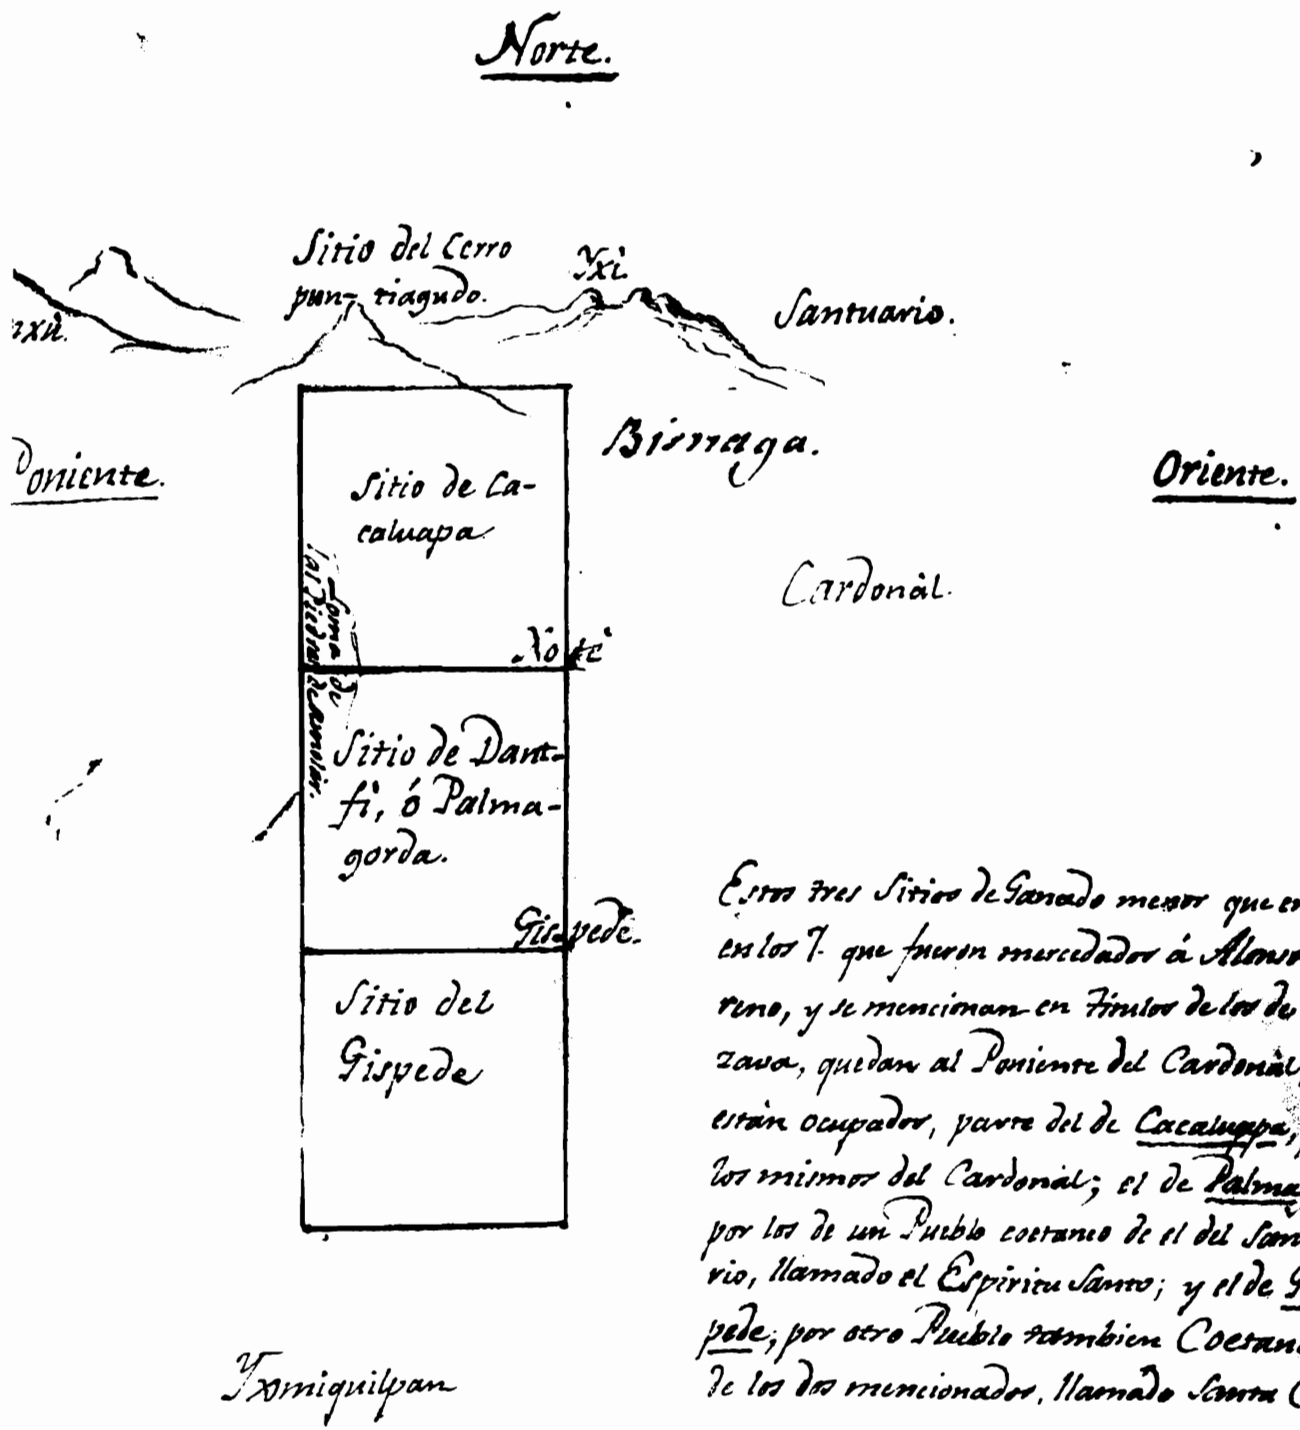 Norte.
Sitio del Cerro
pun- tiagudo.
Yxi.
Santuario.
nxú.
Bisnaga.
Poniente.
Oriente.
Sitio de Ca-
caluapa
Cardonàl.
Loma de
las Piedras de amolár.
Notì
Sitio de Dant-
fì, ó Palma-
gorda.
Gispede.
Sitio del
Gispede
Yxmiquilpan
Estos tres Sitios de Ganado menor que en
en los 7. que fueron mercedados á Alonso
reno, y se mencionan en Titulos de los de
zava, quedan al Poniente del Cardonàl,
están ocupados, parte del de Cacaluapa,
los mismos del Cardonàl; el de Palma
por los de un Pueblo coetaneo de el del San
rio, llamado el Espiritu Santo; y el de G
pede, por otro Pueblo tambien Coetan
de los dos mencionados, llamado Santa C